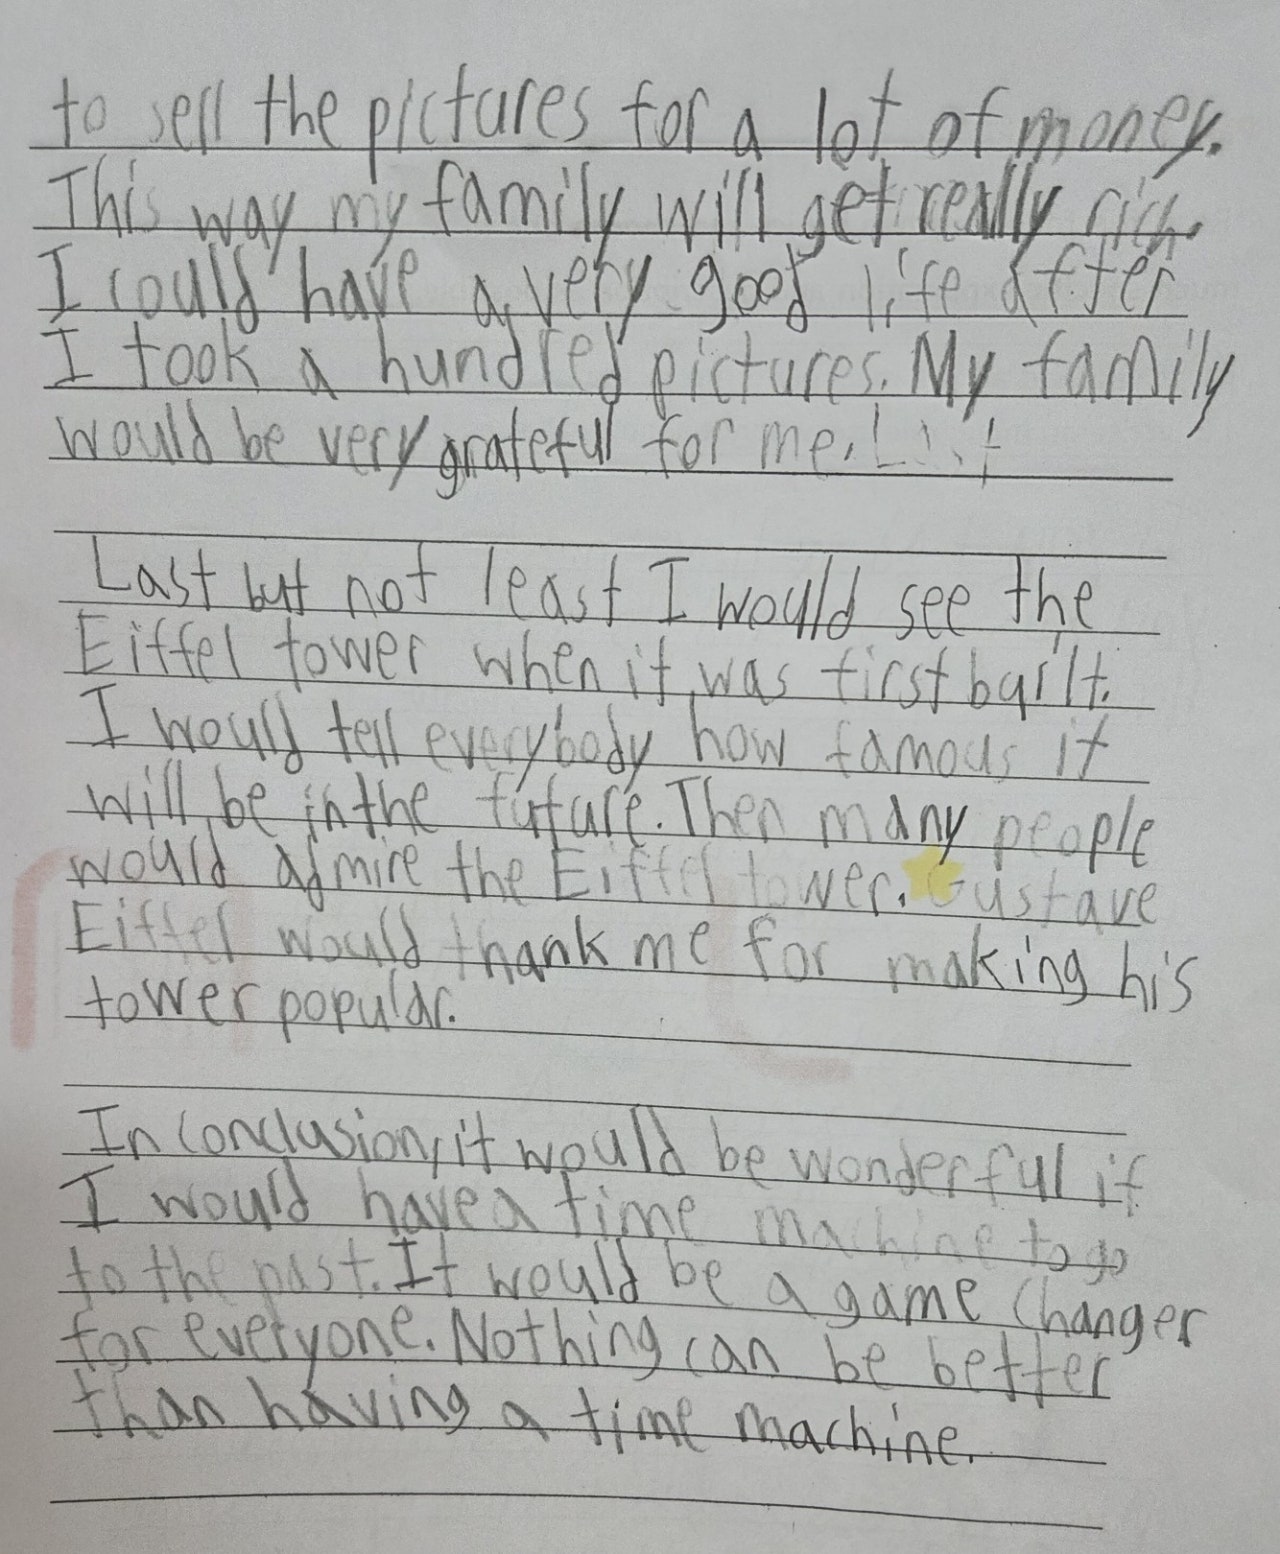 to sell the pictures for a lot of money.
This way my family will get really rich.
I could have a very good life after
I took a hundred pictures. My family
would be very grateful for me. Last
Last but not least I would see the
Eiffel tower when it was first built.
I would tell everybody how famous it
will be in the future. Then many people
would admire the Eiffel tower. Gustave
Eiffel would thank me for making his
tower popular.
In conclusion, it would be wonderful if
I would have a time machine to go
to the past. It would be a game changer
for everyone. Nothing can be better
than having a time machine.